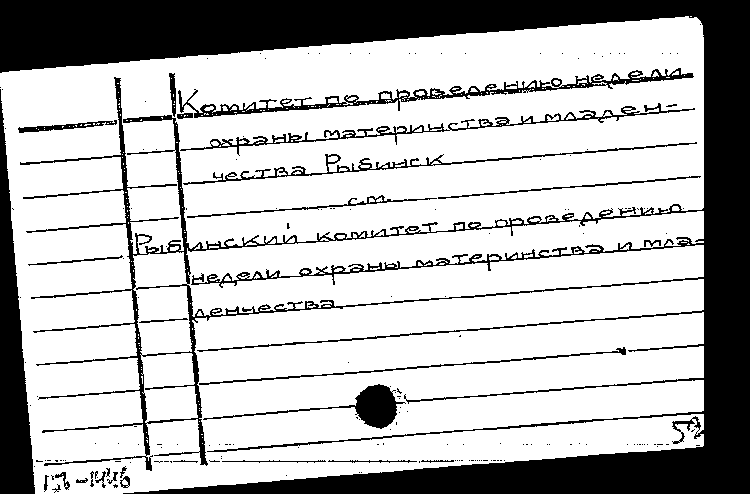 Комитет по проведению недели
охраны материнства и младен-
чества Рыбинск
см.
Рыбинский комитет по проведению
недели охраны материнства и мла=
денчества